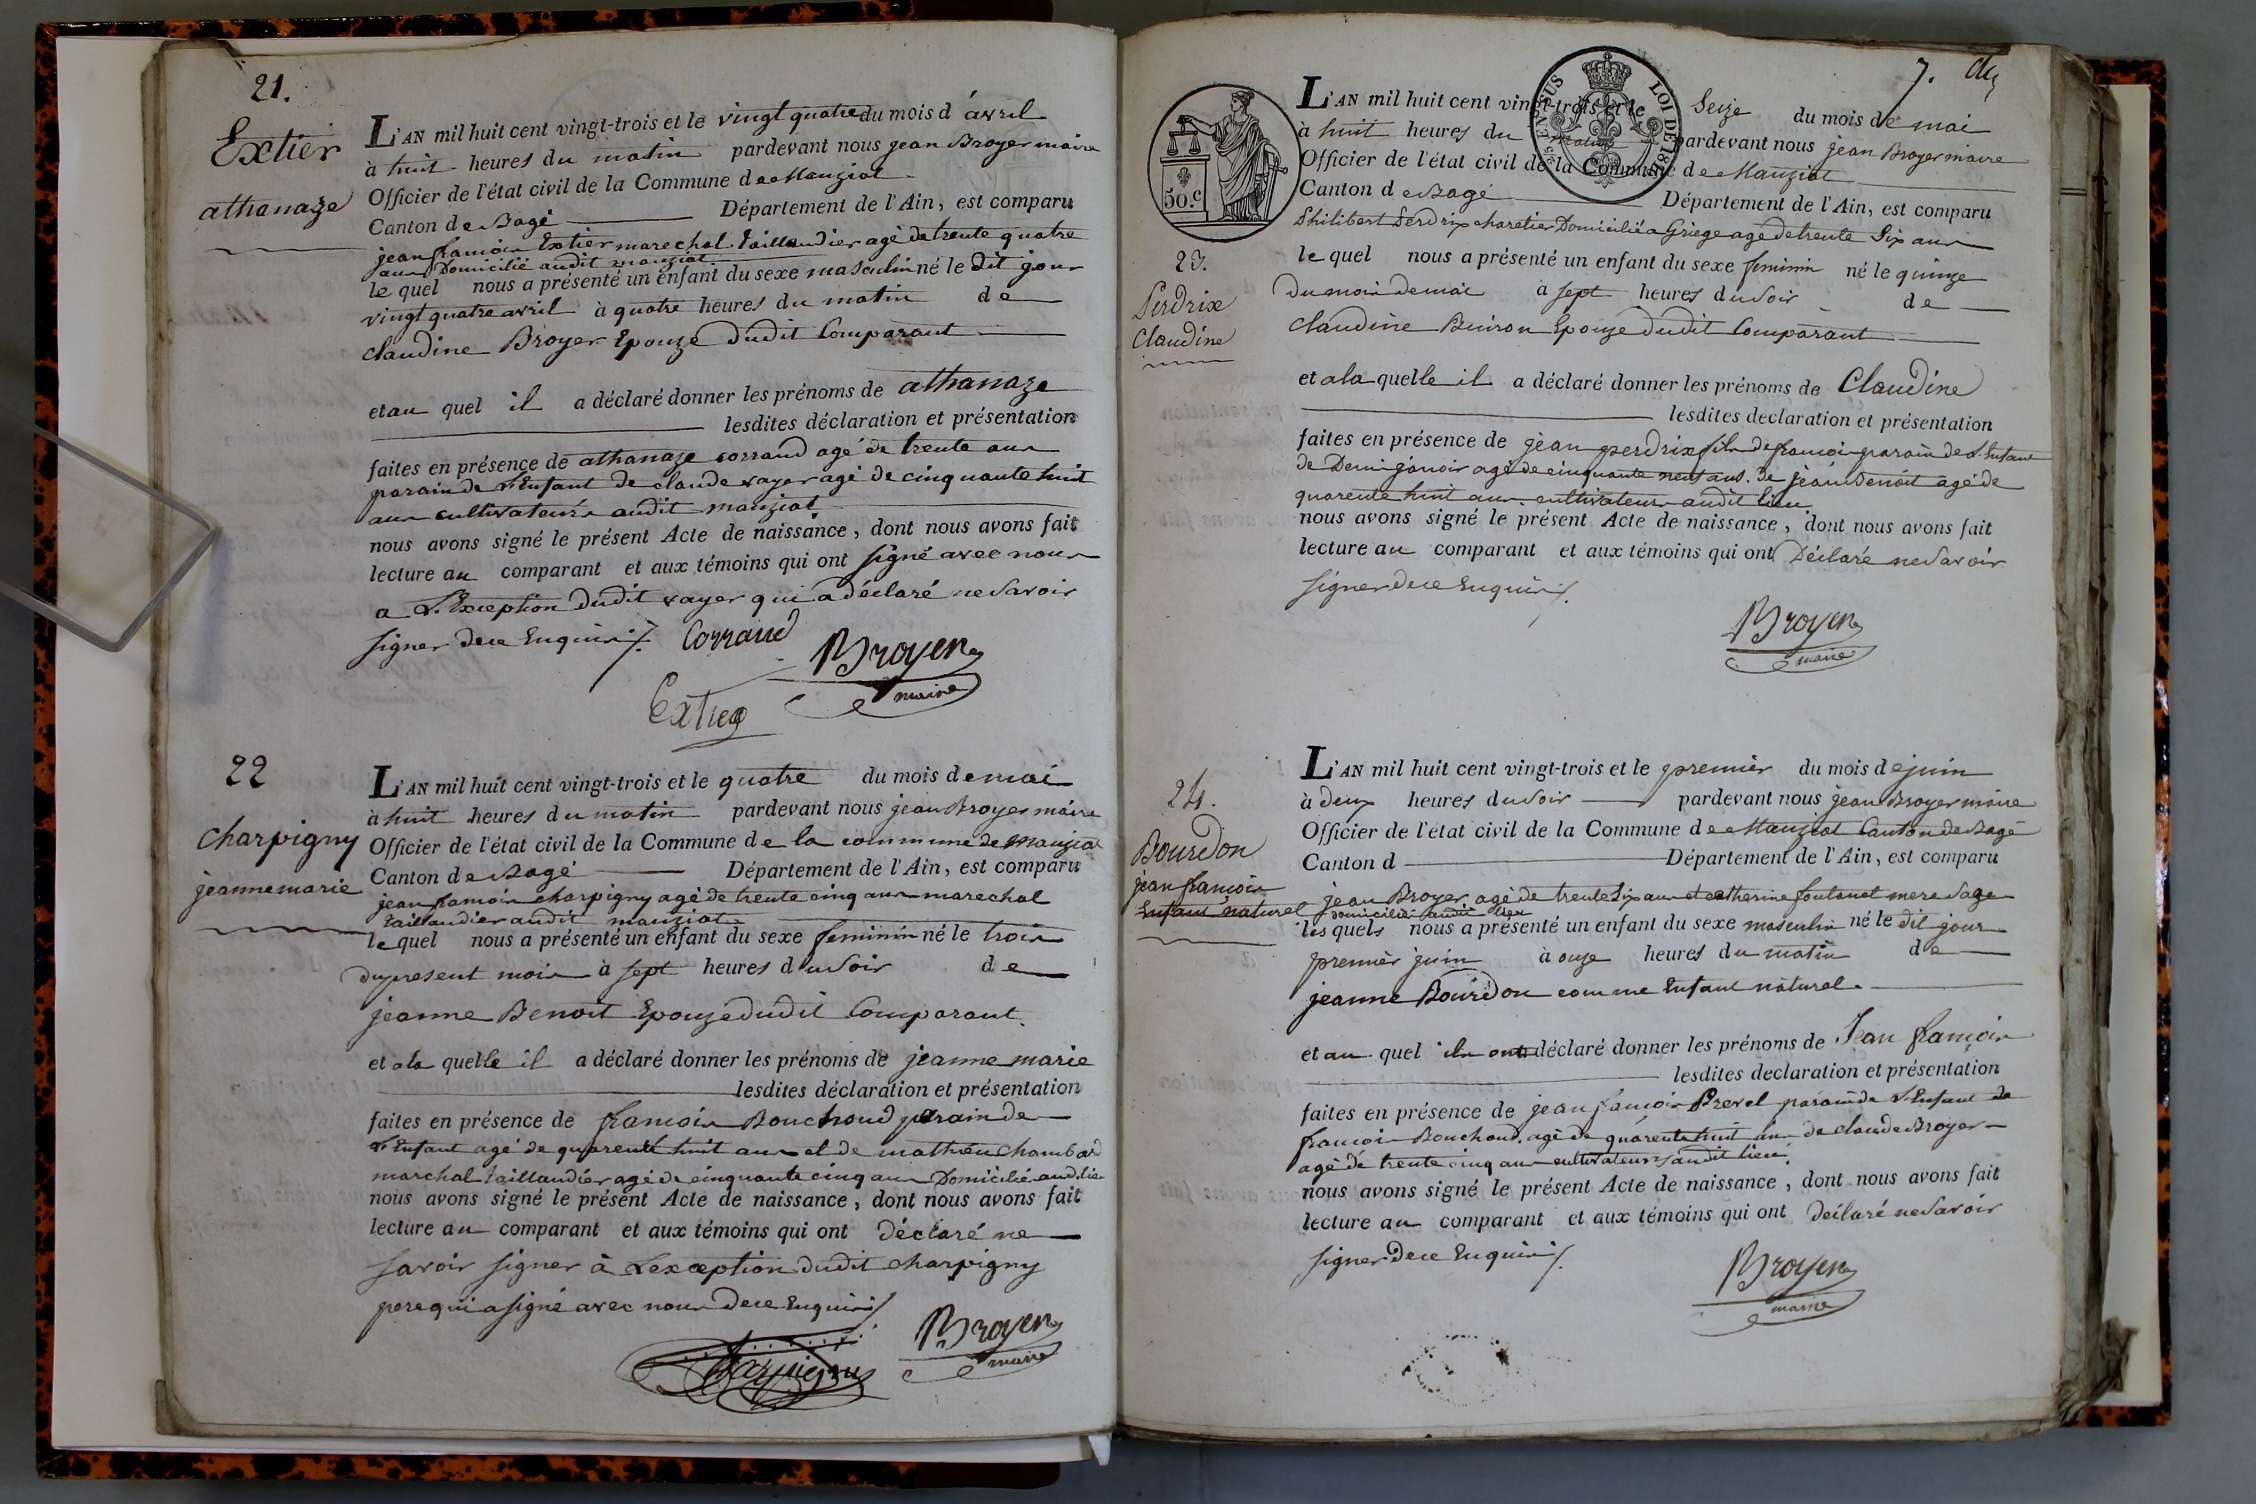 21.
Extier
athanaze
L'AN mil huit cent vingt-trois et le vingt quatre du mois d'avril
à huit heures du matin pardevant nous jean Broyer maire
Officier de l'état civil de la Commune de Manziat
Canton de Bagé Département de l'Ain, est comparu
jean francois Extier marechal taillandier agé de trente quatre
ans Domicilié audit manziat
le quel nous a présenté un enfant du sexe masculin né le dit jour
vingt quatre avril à quatre heures du matin de
claudine Broyer Epouze dudit Comparant
et au quel il a déclaré donner les prénoms de athanaze
lesdites déclaration et présentation
faites en présence de athanaze corraud agé de trente ans
parain de L'Enfant de claude rayer agé de cinquante huit
ans cultivateurs audit manziat
nous avons signé le présent Acte de naissance, dont nous avons fait
lecture au comparant et aux témoins qui ont signé avec nous
a L'Exception dudit rayer qui a déclaré ne Savoir
signer de ce Enquis ./.
Corraud
Broyer
maire
Extier
22
charpigny
jeanne marie
L'AN mil huit cent vingt-trois et le quatre du mois de mai
à huit heures du matin pardevant nous jean Broyer maire
Officier de l'état civil de la Commune de la commune de Manziat
Canton de Bagé Département de l'Ain, est comparu
jean francois charpigny agé de trente cinq ans marechal
taillandier audit manziat
le quel nous a présenté un enfant du sexe feminin né le trois
du present mois à sept heures du Soir de
jeanne Benoit Epouze dudit Comparant.
et a la quelle il a déclaré donner les prénoms de jeanne marie
lesdites déclaration et présentation
faites en présence de francois Bouchoud parain de
L'Enfant agé de quarente huit ans et de mathieu Chambard
marchal taillandier agé de cinquante cinq ans Domicilié aud. lieu
nous avons signé le présent Acte de naissance, dont nous avons fait
lecture au comparant et aux témoins qui ont déclaré ne
savoir signer à Lexception dudit charpigny
pere qui a signé avec nous de ce Enquis ./.
Charpigny
Broyer
maire
7.
50.c
LOI DE 18
23.
Perdrix
Claudine
L'AN mil huit cent vingt-trois et le Seize du mois de mai
à huit heures du matin pardevant nous jean Broyer maire
Officier de l'état civil de la Commune de Manziat
Canton de Bagé Département de l'Ain, est comparu
Philibert Perdrix charetier Domicilié a Griege agé de trente Six ans
le quel nous a présenté un enfant du sexe feminin né le quinze
du mois de mai à sept heures du Soir de
claudine Buiron Epouze dudit Comparant
et a la quelle il a déclaré donner les prénoms de Claudine
lesdites declaration et présentation
faites en présence de jean perdrix fils de francois parain de L'Enfant
de Demi janoir agé de cinquante neuf ans. De jean Benoit agé de
quarente huit ans. cultivateurs audit lieu
nous avons signé le présent Acte de naissance, dont nous avons fait
lecture au comparant et aux témoins qui ont Déclaré ne Savoir
signer de ce Enquis ./.
Broyer
maire
24.
Bourdon
jean francois
Enfant naturel
L'AN mil huit cent vingt-trois et le premier du mois de juin
à deux heures du Soir pardevant nous jean Broyer maire
Officier de l'état civil de la Commune de Manziat Canton de Bagé
Canton d Département de l'Ain, est comparu
jean Broyer agé de trente Six ans et catherine foutanet mere Sage
domicilié audit lieu
les quels nous a présenté un enfant du sexe masculin né le dit jour
premier juin à onze heures du matin de
jeanne Bourdon comme Enfant naturel.
et au quel ils ont déclaré donner les prénoms de Jean francois
lesdites declaration et présentation
faites en présence de jean francois Prevel parain de L'Enfant de
francois Bouchoud. agé de quarente huit ans de claude Broyer
agé de trente cinq ans cultivateurs audit lieu.
nous avons signé le présent Acte de naissance, dont nous avons fait
lecture au comparant et aux témoins qui ont déclaré ne Savoir
signer de ce Enquis ./.
Broyer
maire